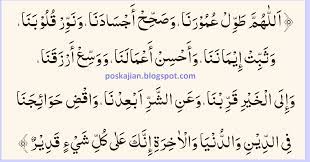 ﴿ اَللّٰهُمَّ طَوِّلْ عُمُوْرَنَا، وَصَحِّحْ أَجْسَادَنَا، وَنَوِّرْ قُلُوْبَنَا،
وَثَبِّتْ إِيْمَانَنَا، وَأَحْسِنْ أَعْمَالَنَا، وَوَسِّعْ أَرْزَقَنَا،
poskajian.blogspot.com
وَإِلَى الْخَيْرِ قَرِّبْنَا، وَعَنِ الشَّرِّ أَبْعِدْنَا، وَاقْضِ حَوَائِجَنَا
فِى الدِّيْنِ وَالدُّنْيَا وَالْاٰخِرَةِ إِنَّكَ عَلَىٰ كُلِّ شَيْءٍ قَدِيْرٌ ﴾